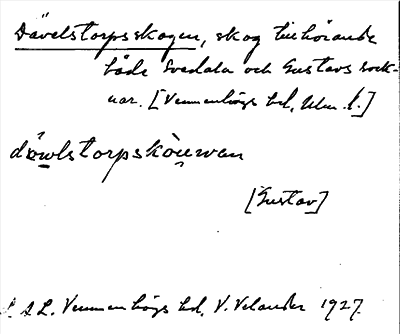 Dävelstorpsskogen, skog tillhörande
både Svedala och Gustavs sock-
nar. [Vemmenhögs hd, Mlm. l.]
däwlstorpskòuwan
[Gustav]
L. A. L. Vemmenhögs hd. V. Velander 1927.